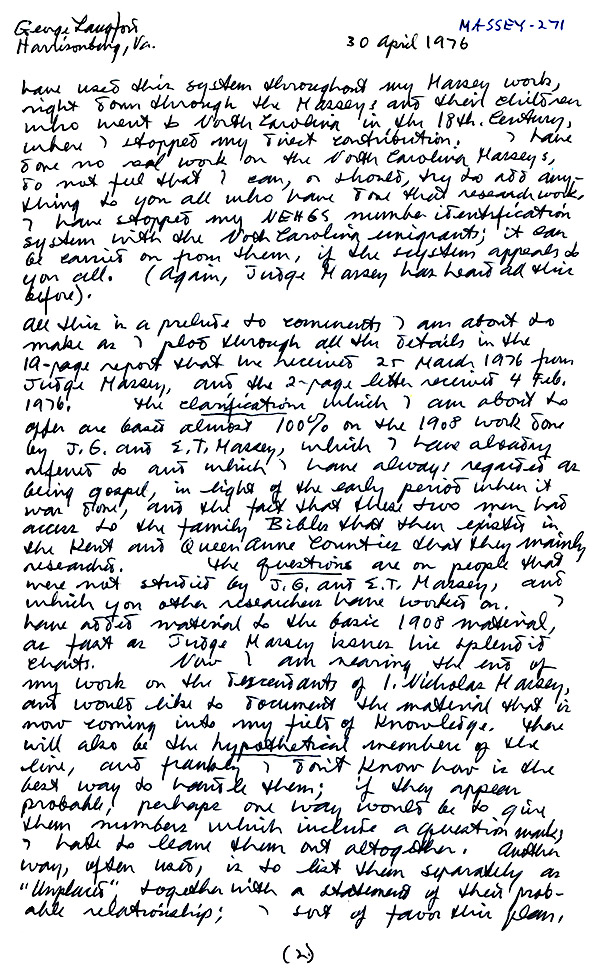 George Langford MASSEY-271
Harrisonburg, Va. 30 April 1976
have used this system throughout my Massey work,
right down through the Masseys and their children
who went to North Carolina in the 18th. Century,
where I stopped my direct contribution. I have
done no real work on the North Carolina Masseys,
do not feel that I can, or should, try to add any-
thing to you all who have done that research work.
I have stopped my NEHGS number identification
system with the North Carolina emigrants; it can
be carried on from them, if the system appeals to
you all. (Again, Judge Massey has heard all this
before).
All this is a prelude to comments I am about to
make as I plod through all the details in the
19-page report that we received 25 March 1976 from
Judge Massey, and the 2-page letter received 4 Feb.
1976. The clarifications which I am about to
offer are based almost 100% on the 1908 work done
by J.G. and E.T. Massey, which I have already
referred to and which I have always regarded as
being gospel, in light of the early period when it
was done, and the fact that these two men had
access to the family Bibles that then existed in
the Kent and Queen Anne Counties that they mainly
researched. The questions are on people that
were not studied by J.G. and E.T. Massey, and
which you other researchers have worked on. I
have added material to the basic 1908 material,
as fast as Judge Massey issues his splendid
charts. Now I am nearing the end of
my work on the descendants of 1. Nicholas Massey,
and would like to document the material that is
now coming into my field of knowledge. There
will also be the hypothetical members of the
line, and frankly I don't know how is the
best way to handle them; if they appear
probable, perhaps one way would be to give
them numbers which include a question mark;
I hate to leave them out altogether. Another
way, often used, is to list them separately as
"Unplaced", together with a statement of their prob-
able relationship; I sort of favor this plan.
(2.)